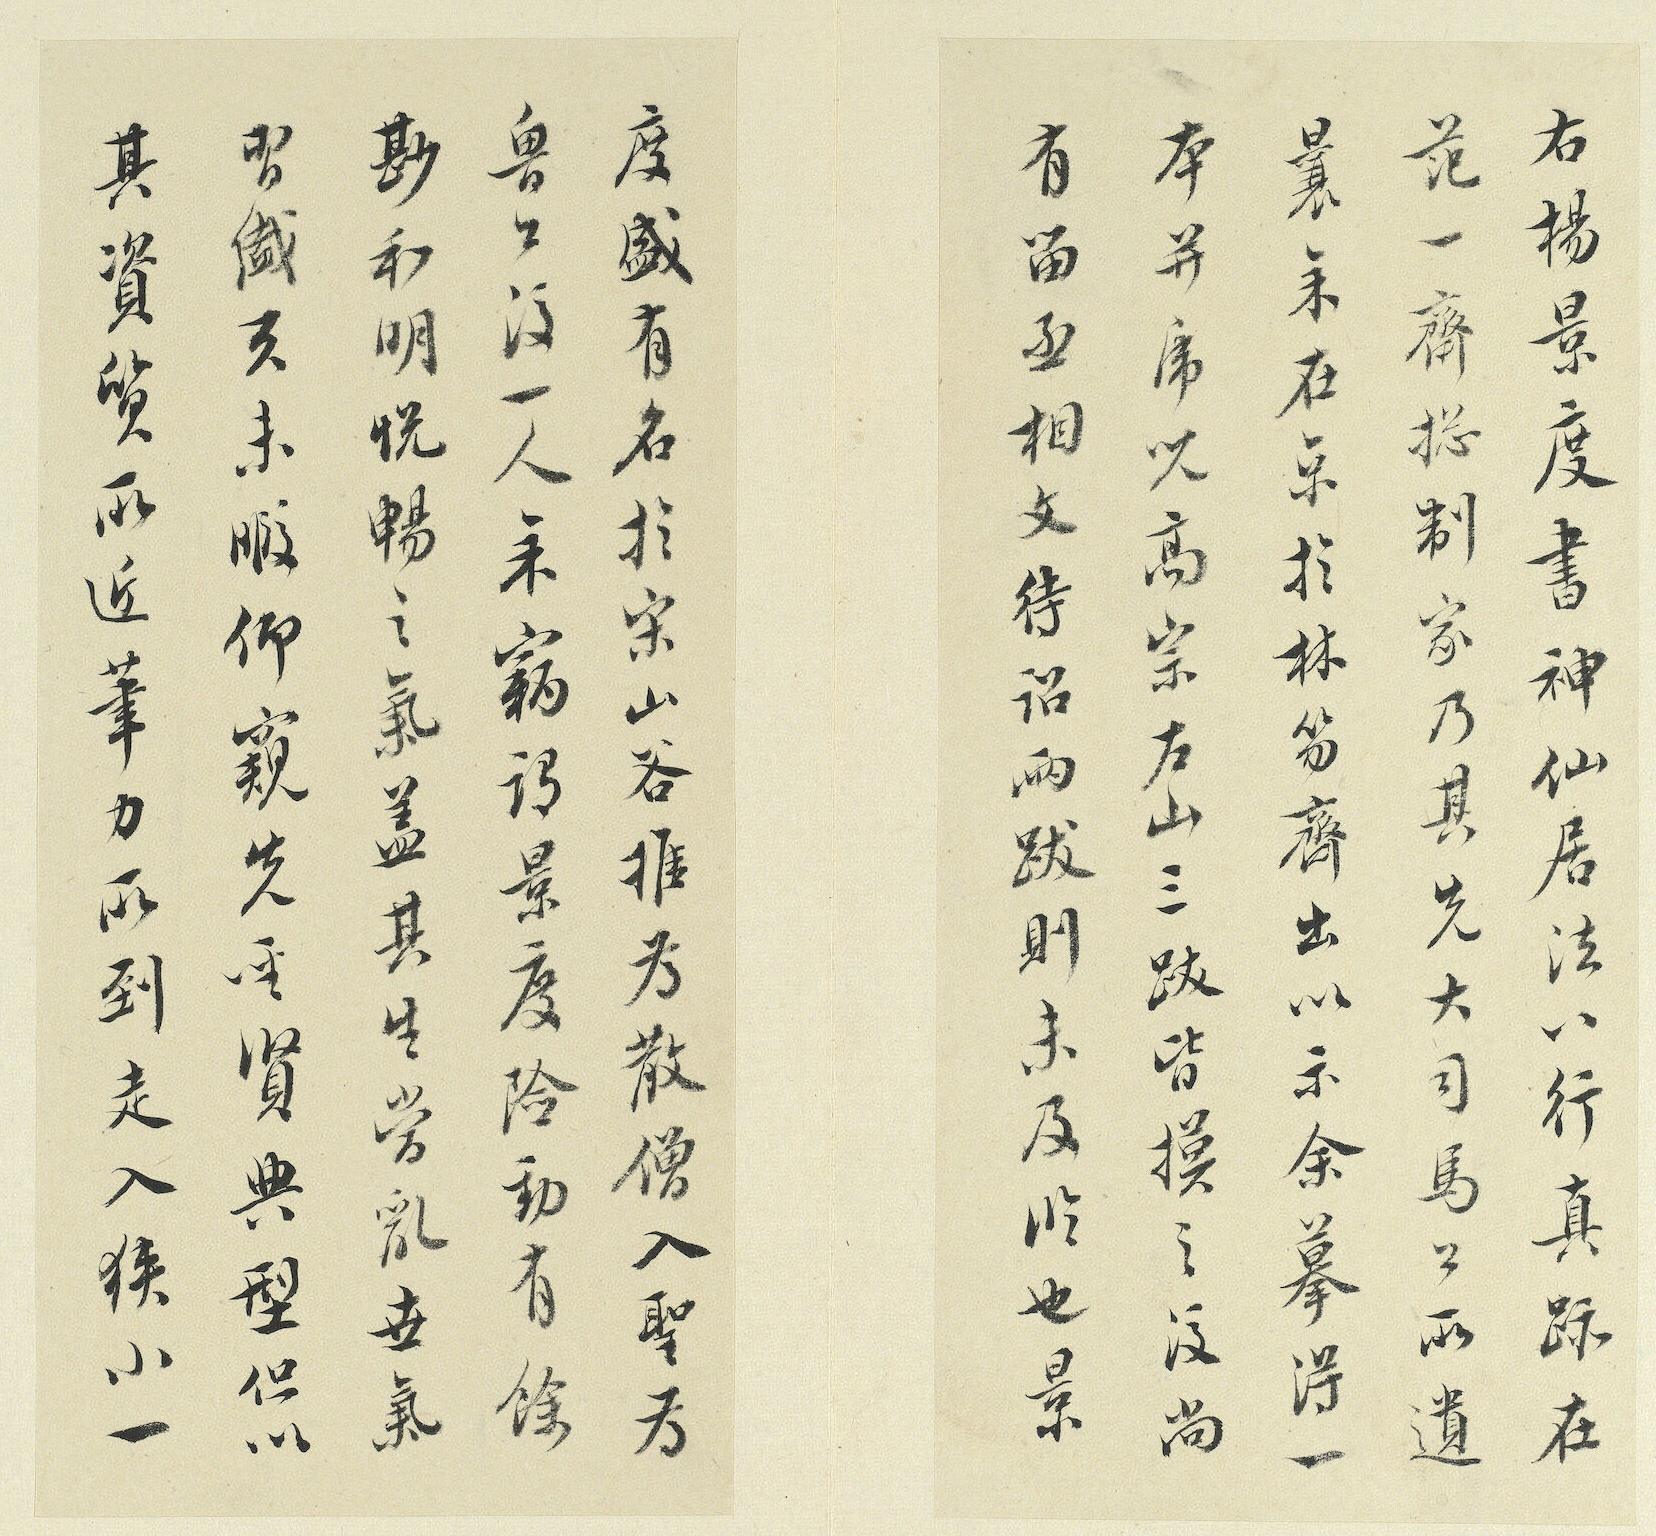 右楊景度書神仙居法八行真跡在
范一齋揔制家乃其先大司馬公所遺
曩余在京於林芴齋出以示余摹得一
本并席呪高宗左山三跋皆摸之後尚
有留丞相文待詔兩跋則未及临也景
度盛有名於宋山谷推為散僧入聖為
魯公後一人余竊謂景度險勁有餘
尠和明悅暢之氣盖其生當亂世氣
習戲玄未暇仰窺先聖賢典型但以
其資質所近筆力所到走入狹小一